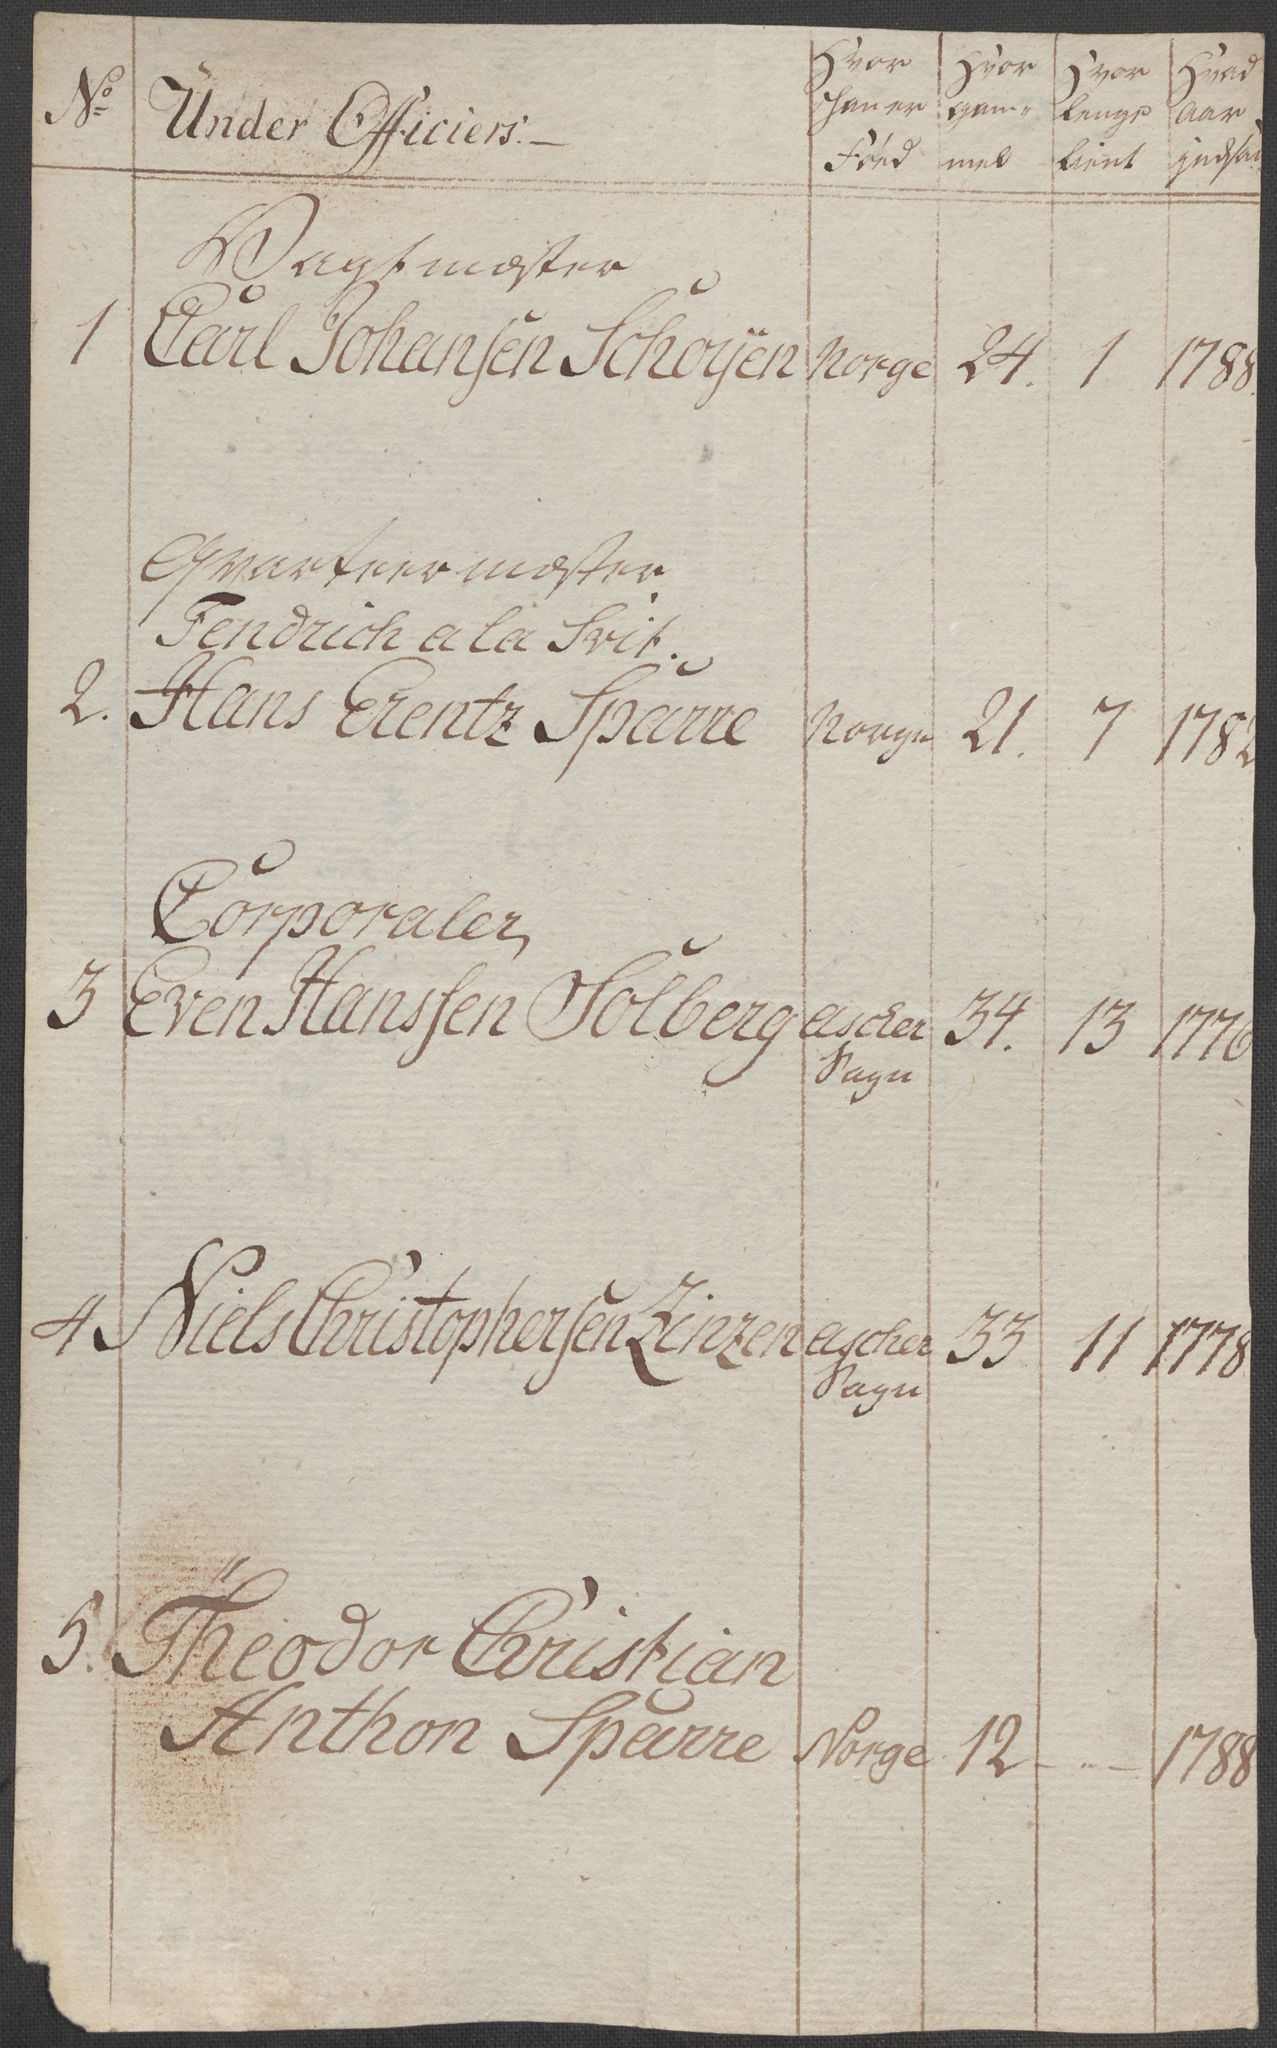 No Under Officiers.
Hvor han er Föed
Hvor gam- mel
Hvor lenge tient
Hvad aar
Vagtmæster
1 Carl Johansen Schoÿen Norge 24. 1 1788.
Qvarteermæster
Fendrich a la Svit.
2. Hans Erentz Sparre Norge 21. 7 1782
Corporaler,
3 Even Hanssen Solberg Ascher 34. 13 1776
Sagn
4 Niels Christophersen Zinzen Ascher 33 11 1778
Sagn
5. Theodor Christian
Anthon Sparre Norge 12 - " - 1788